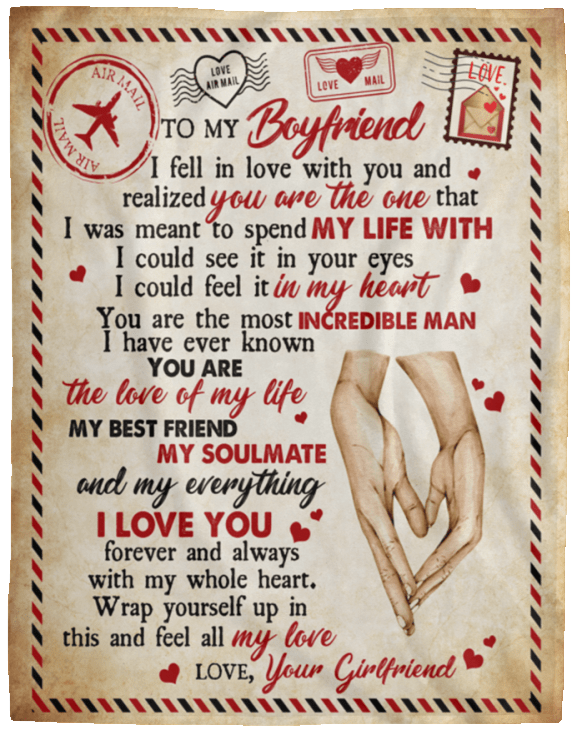 AIR MAIL
AIR MAIL
AIR MAIL
LOVE
AIR MAIL
LOVE MAIL
LOVE
TO MY Boyfriend
I fell in love with you and
realized you are the one that
I was meant to spend MY LIFE WITH
I could see it in your eyes
I could feel it in my heart
You are the most INCREDIBLE MAN
I have ever known
YOU ARE
the love of my life
MY BEST FRIEND
MY SOULMATE
and my everything
I LOVE YOU
forever and always
with my whole heart.
Wrap yourself up in
this and feel all my love
LOVE, Your Girlfriend